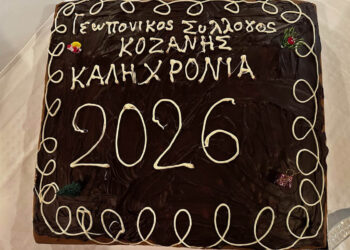 Γεωπονικος Συλλογος
ΚΟΖΑΝΗΣ
ΚΑΛΗ ΧΡΟΝΙΑ
2026